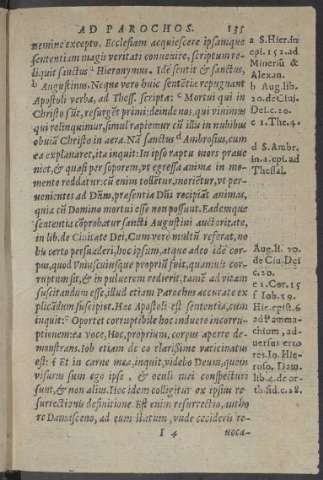 AD PAROCHOS. 135
nemine excepto. Ecclesiam acquiescere ipsamque
sententiam magis veritati convenire, scriptum re-
liquit sanctus ᵃ Hieronymus. Idē sentit & sanctus,
ᵇ Augustinus. Neque vero huic sentētiæ repugnant
Apostoli verba, ad Thess. scripta: ᶜ Mortui qui in
Christo sūt, resurgēt primi: deinde nos, qui vivimus
qui relinquimur, simul rapiemur cū illis in nubibus
obviā Christo in aera. Nā sanctus ᵈ Ambrosius, cum
ea explanaret, ita inquit: In ipso raptu mors præve
niet, & quasi per soporem, vt egressa anima in mo-
mento reddatur: cū enim tolletur, morietur, vt per-
venientes ad Dñm, præsentia Dñi recipiāt animas,
quia cū Domino mortui esse non possunt. Eademque
sententia cōprobatur sancti Augustini auctoritate,
in lib. de Civitate Dei. Cum vero multū referat, no
bis certo persuaderi, hoc ipsum, atque adeo idē cor-
pus, quod Vniuscuiusque propriū fuit, quamvis cor-
ruptum sit, & in puluerem redierit, tamē ad vitam
suscitandum esse, illud etiam Parochus accurate ex
plicandum suscipiet. Hæc Apostoli est sententia, cum
inquit: ᵉ Oportet corruptibile hoc induere incorru-
ptionem: ea voce, Hoc, proprium, corpus aperte de-
monstrans. Iob etiam de eo clarissime vaticinatus
est: ᶠ Et in carne mea, inquit, videbo Deum, quem
visurus sum ego ipse, & oculi mei conspecturi
sunt, & non alius. Hoc idem colligitur ex ipsius re-
surrectionis definitione. Est enim resurrectio, autho
re Damasceno, ad eum statum, vnde cecideris re-
I 4 uoca-
a S. Hier. in
epi. 152. ad
Mineriū &
Alexan.
b Aug. lib.
20. de Ciui.
Dei. c. 20.
c 1. The. 4.
d S. Ambr.
in. 1. epi. ad
Thessal.
Aug. li. 20.
de Ciu. Dei
c. 20.
e 1. Cor. 15
f Iob. 19.
Hie. epist. 6
chium, ad-
res Io. Hie-
roso. Dam.
lib. 4. de or-
th. fid. c. 28.